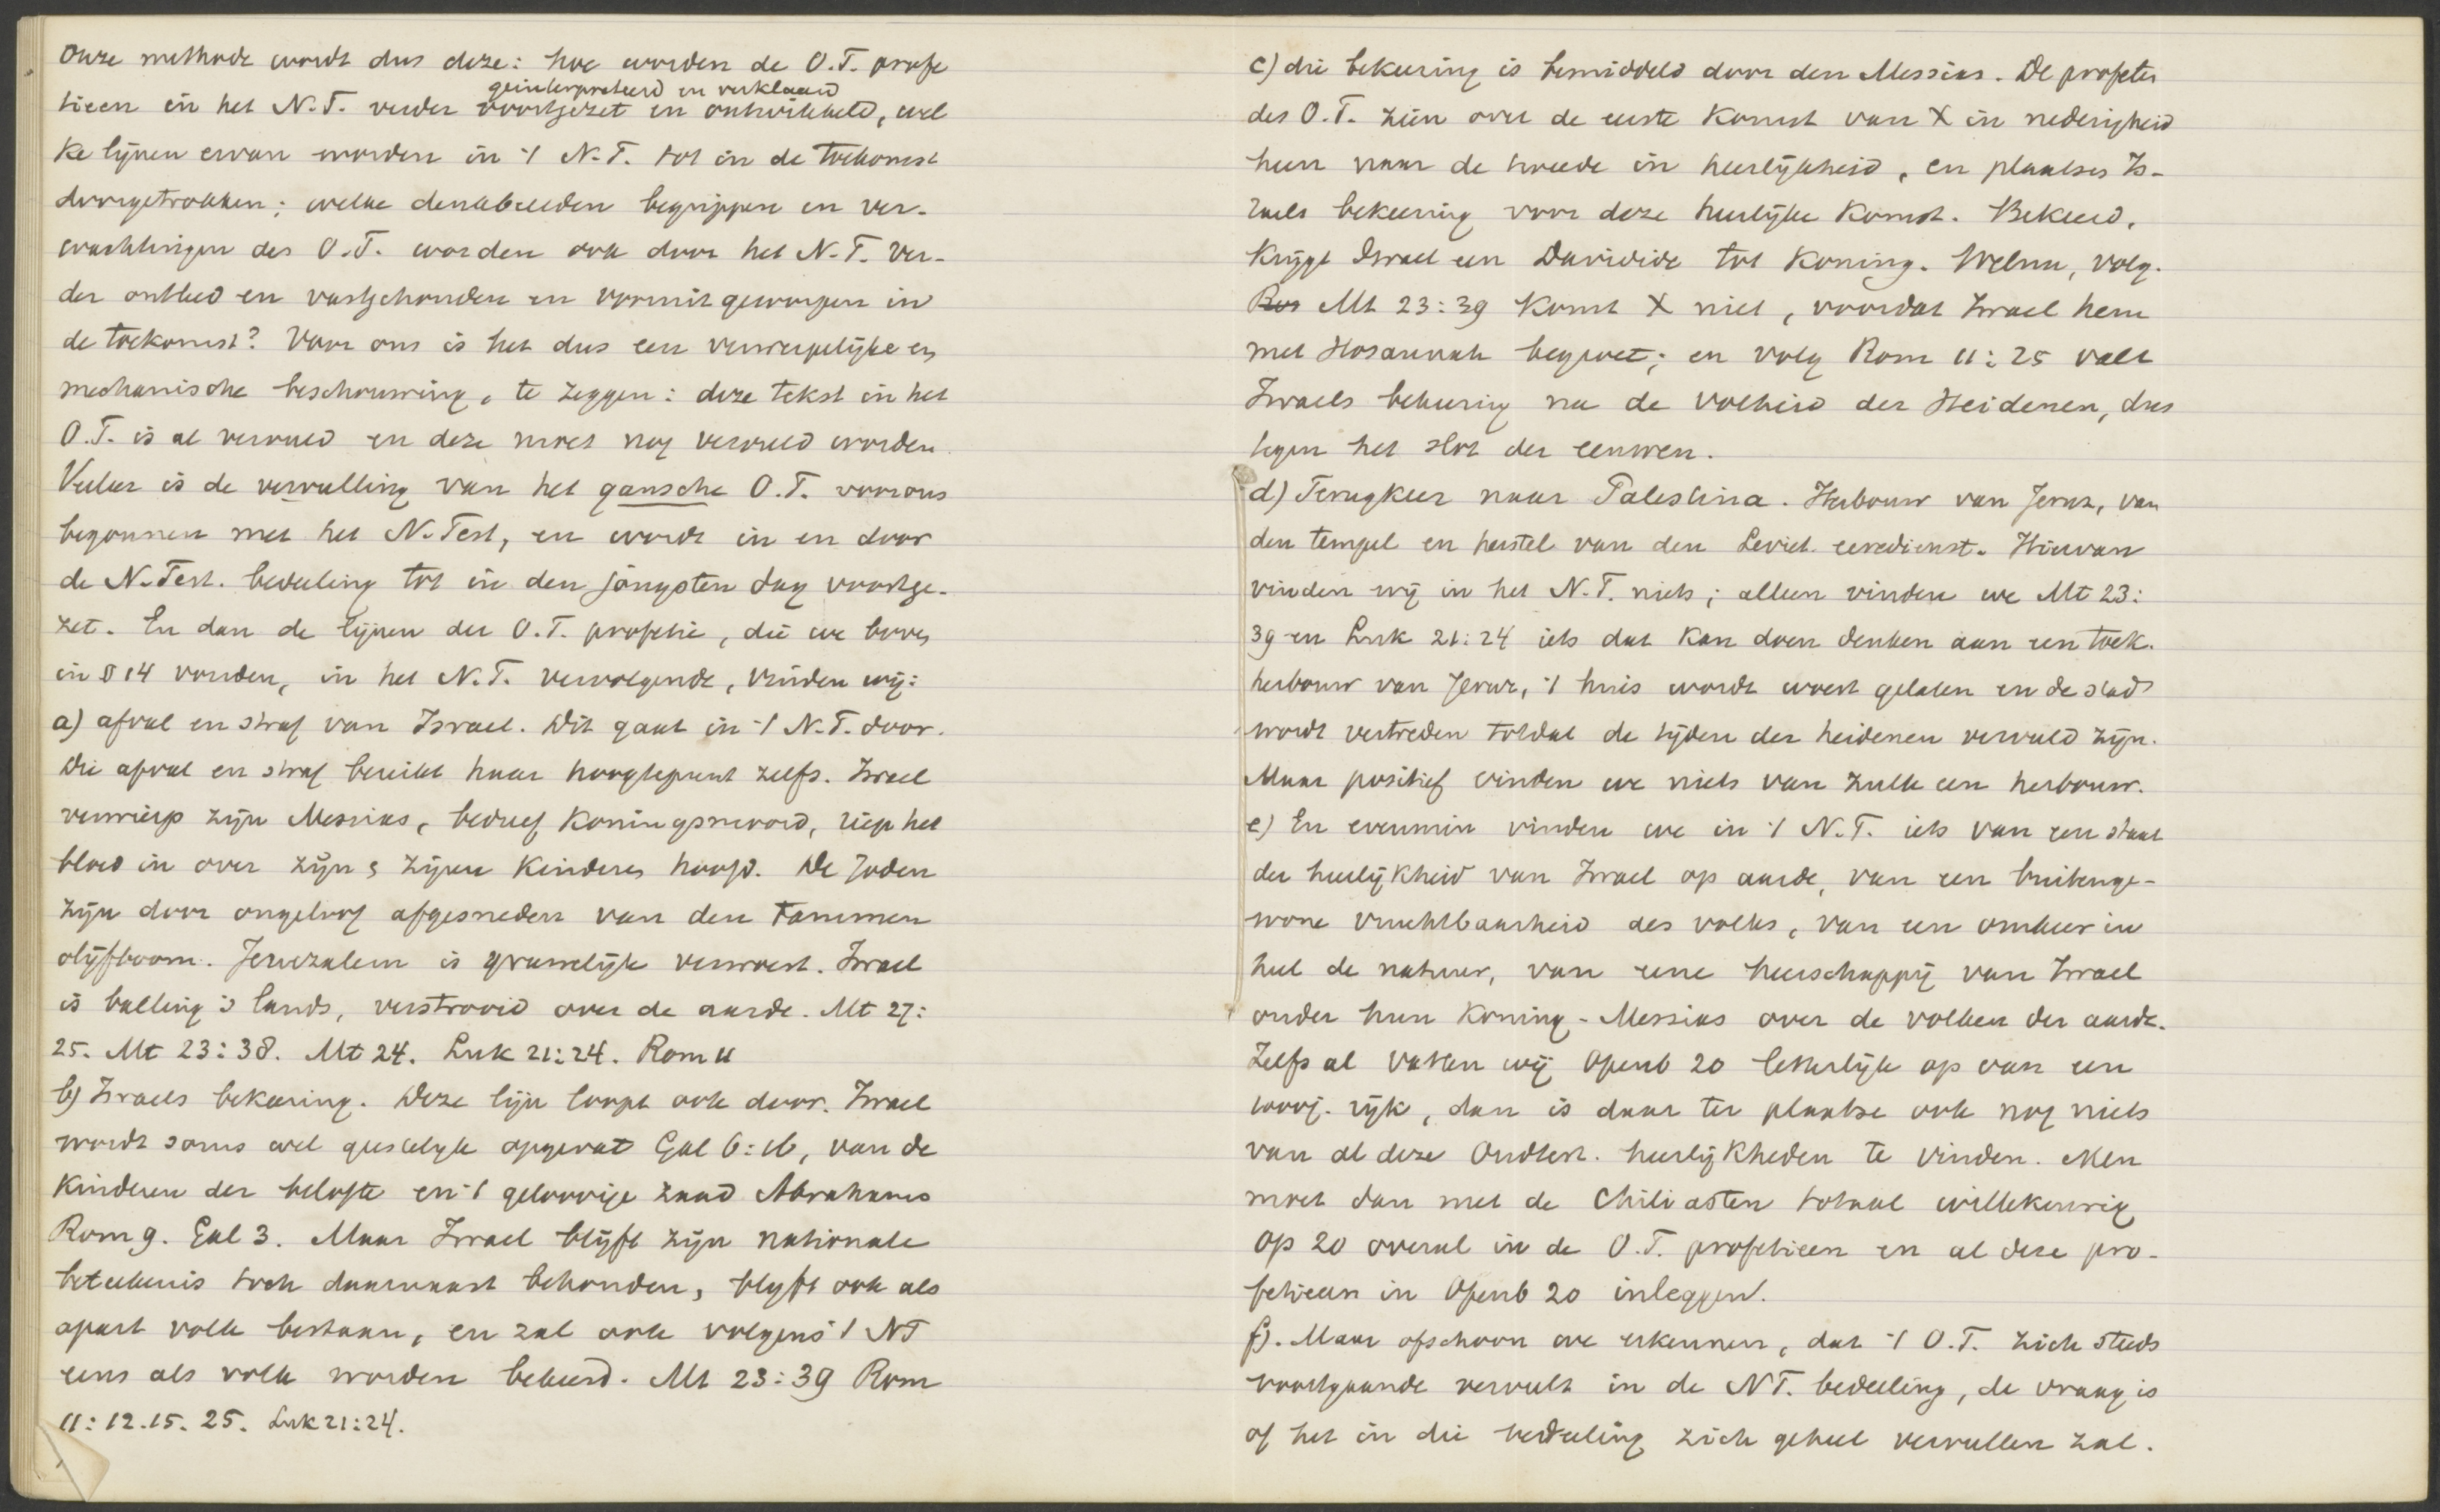 Onze methode wordt dus deze: hoe worden de O.T. profe
geinterpreteerd en verklaard
tieen in het N.T. verder voortgezet en ontwikkeld, wel
ke lijnen ervan worden in 't N.T. tot in de toekomst
doorgetrokken; welke denkbeelden begrippen en ver-
wachtingen des O.T. worden ook door het N.T. ver-
der ontleed en vastgehouden en vooruit geworpen in
de toekomst? Voor ons is het dus een verwerpelijke en
mechanische beschouwing, te zeggen: deze tekst in het
O.T. is al vervuld en deze moet nog vervuld worden
Veeleer is de vervulling van het gansche O.T. voor ons
begonnen met het N.Test, en wordt in en door
de N.Test. bedeeling tot in den jongsten dag voortge-
zet. En dan de lijnen der O.T. profetie, die we boven
in § 14 vonden, in het N.T. vervolgende, vinden wij:
a) afval en straf van Israel. Dit gaat in 't N.T. door.
Die afval en straf bereikt haar hoogtepunt zelfs. Israel
verwierp zijn Messias, bedreef Koningsmoord, riep het
bloed in over zijn & zijner Kinderen hoofd. De Joden
zijn door ongeloof afgesneden van den tammen
olijfboom. Jeruzalem is gruwelijk verwoest. Israel
is balling 's lands, verstrooid over de aarde. Mt 27:
25. Mt 23:38. Mt 24. Luk 21:24. Rom 11
b) Israels bekeering. Deze lijn loopt ook door. Israel
wordt soms wel geestelijk opgevat Gal 6:16, van de
Kinderen der belofte en 't geloovige zaad Abrahams
Rom 9. Gal 3. Maar Israel blijft zijn nationale
beteekenis toch daarnaast behouden, blijft ook als
apart volk bestaan, en zal ook volgens 't NT
eens als volk worden bekeerd. Mt 23:39 Rom
11:12.15.25. Luk 21:24.
c) die bekeering is bemiddeld door den Messias. De profeten
des O.T. zien over de eerste Komst van X in nederigheid
heen naar de tweede in heerlijkheid, en plaatsen Is-
raels bekeering voor deze heerlijke Komst. Bekeerd,
Krijgt Israel een Davidide tot Koning. Welnu, volg.
Rom Mt 23:39 Komt X niet, voordat Israel hem
met Hosannah begroet; en volg Rom 11:25 valt
Israels bekeering na de volheid der Heidenen, dus
tegen het slot der eeuwen.
d) Terugkeer naar Palestina. Herbouw van Jeruz, van
den tempel en herstel van den Leviet. eeredienst. Hiervan
vinden wij in het N.T. niets; alleen vinden we Mt 23:
39 en Luk 21:24 iets dat Kan doen denken aan een toek.
herbouw van Jeruz, 't huis wordt woest gelaten en de stad
wordt vertreden totdat de tijden der heidenen vervuld zijn.
Maar positief vinden we niets van zulk een herbouw.
e) En evenmin vinden we in 't N.T. iets van een staat
der heerlijkheid van Israel op aarde, van een buitenge-
wone vruchtbaarheid des volks, van een omkeer in
heel de natuur, van eene heerschappij van Israel
onder hun Koning-Messias over de volken der aarde.
Zelfs al vatten wij Openb 20 letterlijk op van een
1000j. rijk, dan is daar ter plaatse ook nog niets
van al deze Oudtest. heerlijkheden te vinden. Men
moet dan met de Chiliasten totaal willekeurig
Op 20 overal in de O.T. profetieen en al deze pro-
fetieen in Openb 20 inleggen.
f). Maar ofschoon we erkennen, dat 't O.T. zich steeds
voortgaande vervult in de NT. bedeeling, de vraag is
of het in die bedeeling zich geheel vervullen zal.